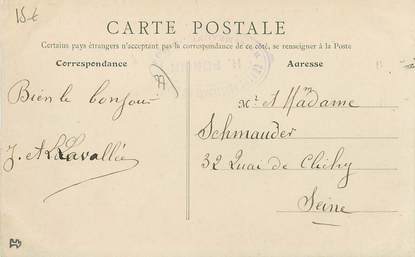 15€
CARTE POSTALE
Certains pays étrangers n'acceptant pas la correspondance de ce côté, se renseigner à la Poste
Correspondance
Adresse
Bien le bonjour
J. et L. Lavallée
Mr et Madame
Schmauder
32 Quai de Clichy
Seine